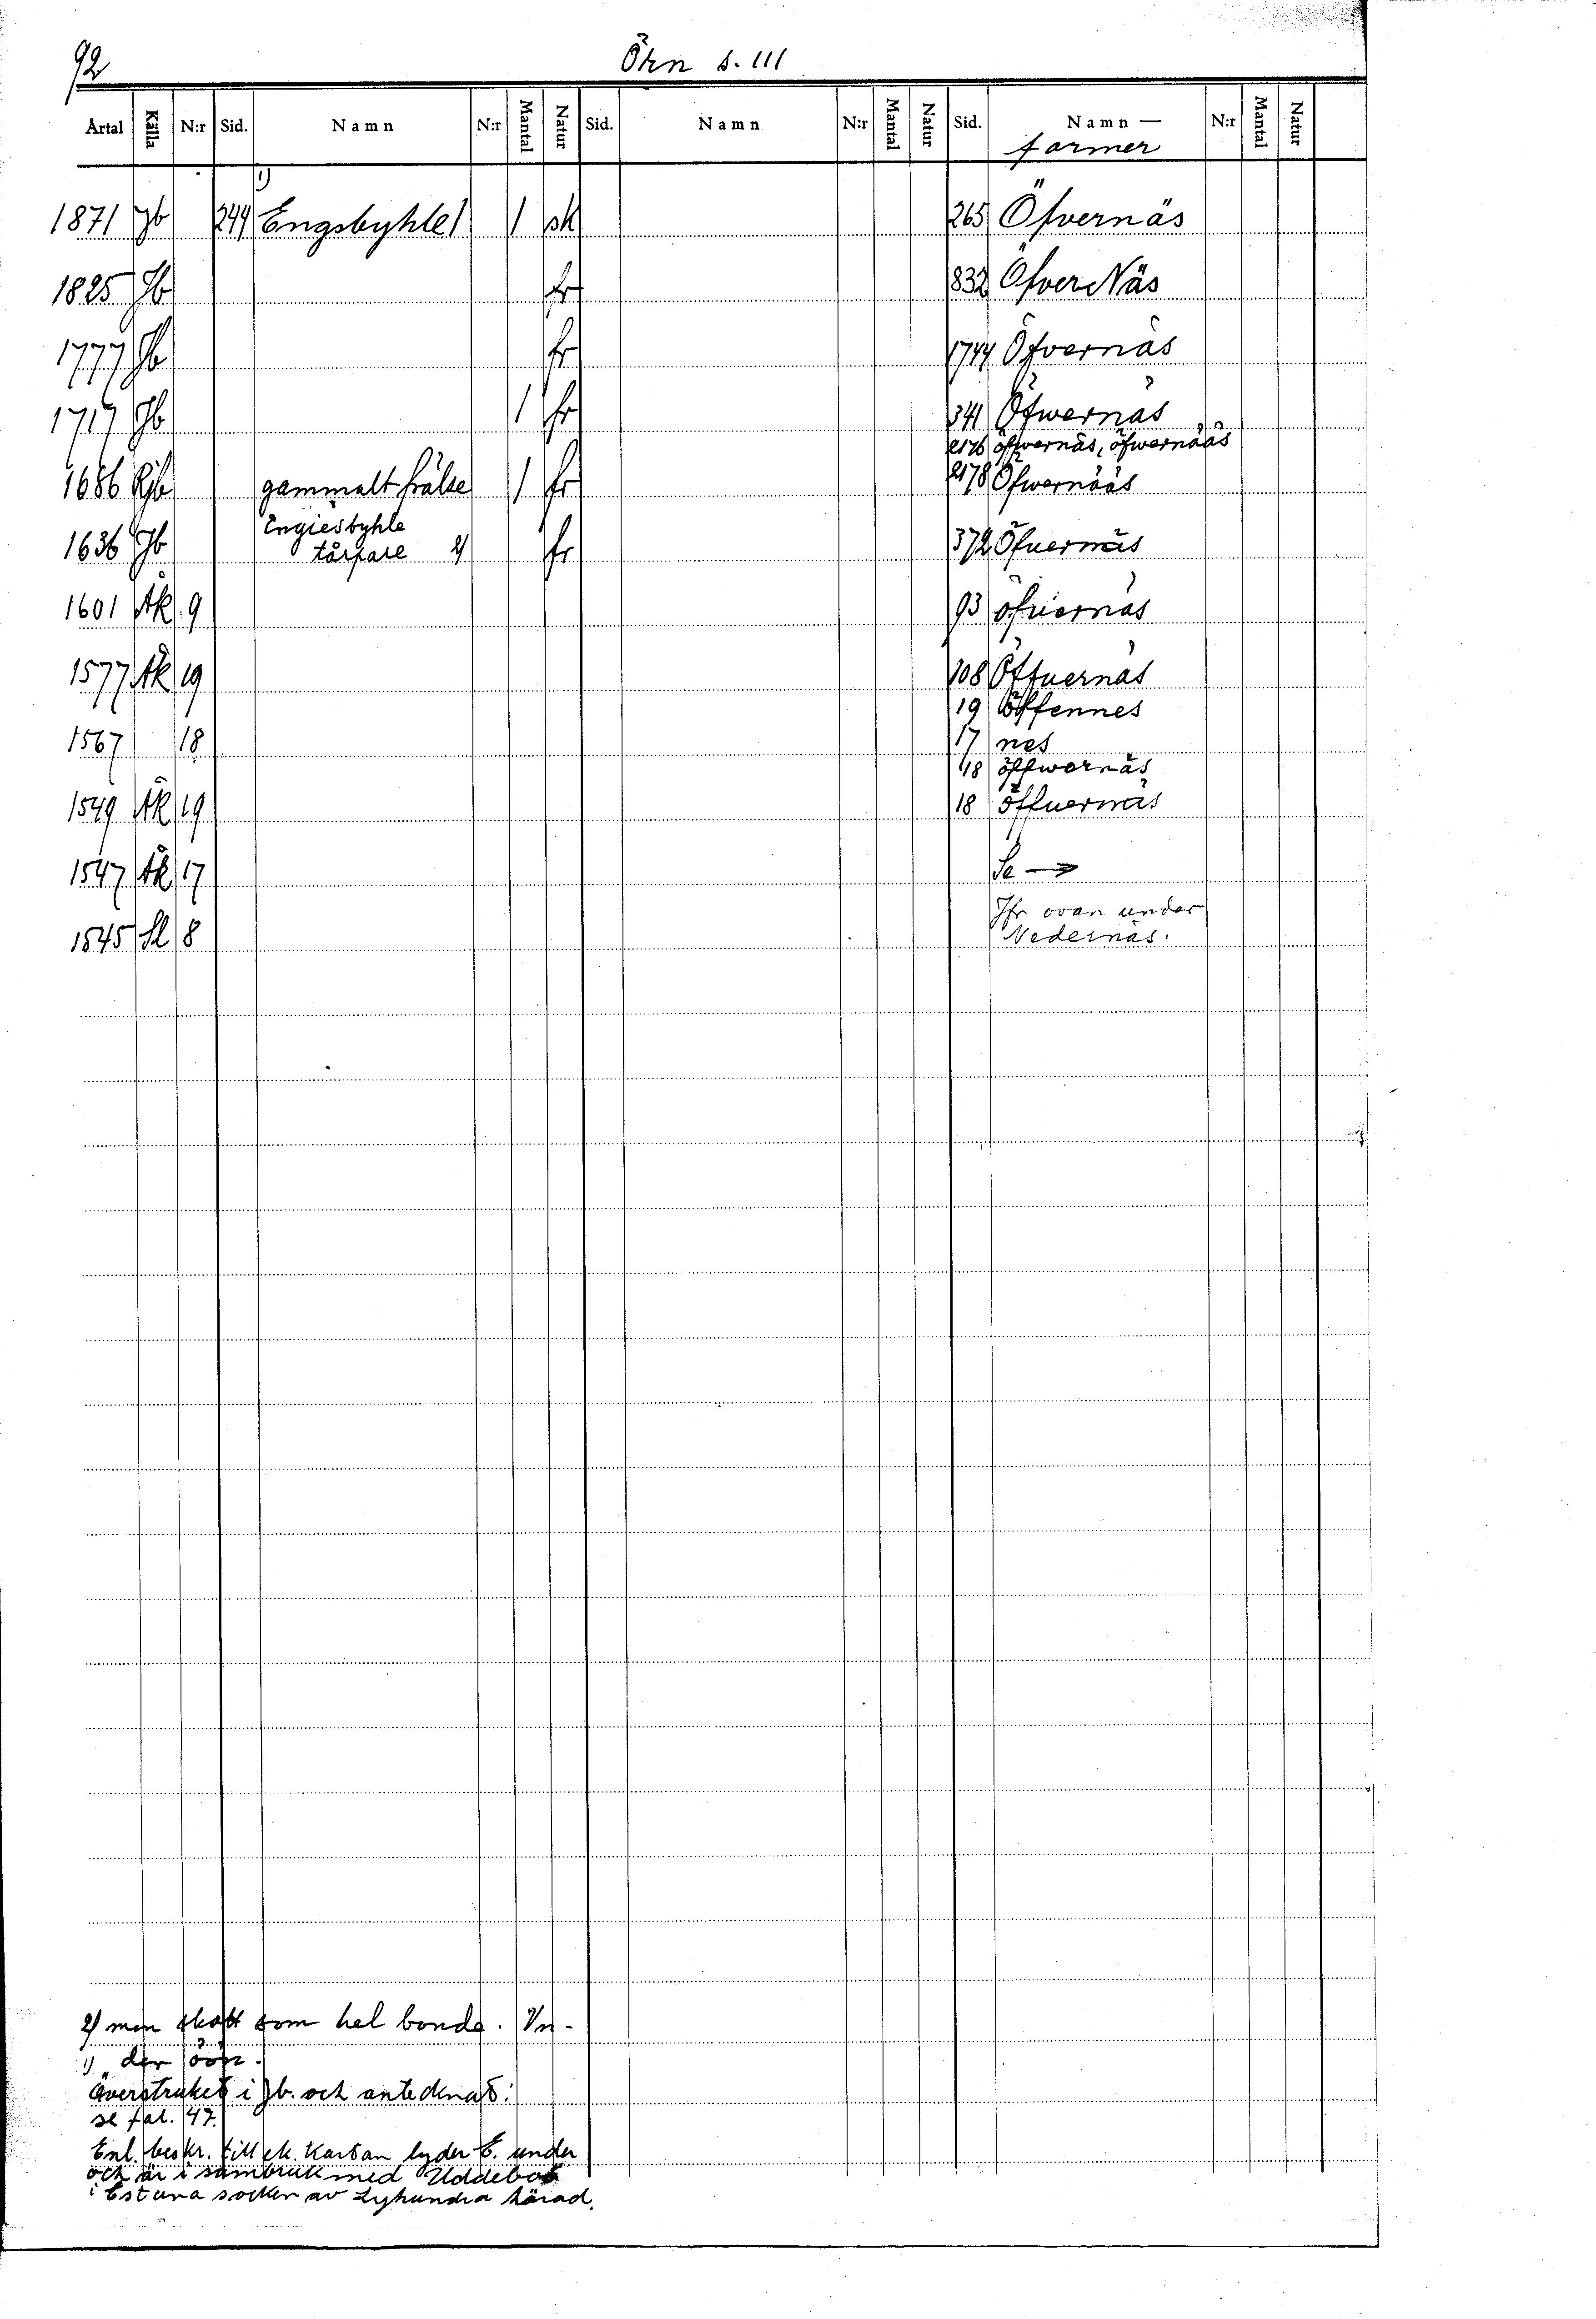 92
Örn s. 111
Årtal Källa N:r Sid. Namn N:r Mantal Natur Sid. Namn N:r Mantal Natur Sid. Namn — N:r Mantal Natur
former
1871 Jb 244 Engsbyhle 1) 1 sk 265 Öfvernäs
1825 Jb fr 832 ÖfverNäs
1777 Jb fr 1744 Öfvernäs
1717 Jb 1 fr 341 Öfwernäs
2176 öfwernäs, öfwernääs
1686 Rjb gammalt frälse 1 fr 2178 Öfwernääs
Engiesbyhle
1636 Jb tårpare 2) fr 372 Öfuernäs
1601 Åk 9 93 öfuernäs
1577 Åk 19 108 Öffuernäs
19 Öffennes
1567 18 17 nes
18 öffwernäs
1549 Åk 19 18 öffuernäs
1547 Åk 17 Se →
Jfr ovan under
1545 Sl 8 Nedernäs.
2) men skatt som hel bonde.
1) der öör.
Överstruket i Jb. och antecknat:
se fol. 47.
Enl. beskr. till ek. kartan lyder E. under
och är i sambruk med Uddeboö
i Estuna socken av Lyhundra härad.